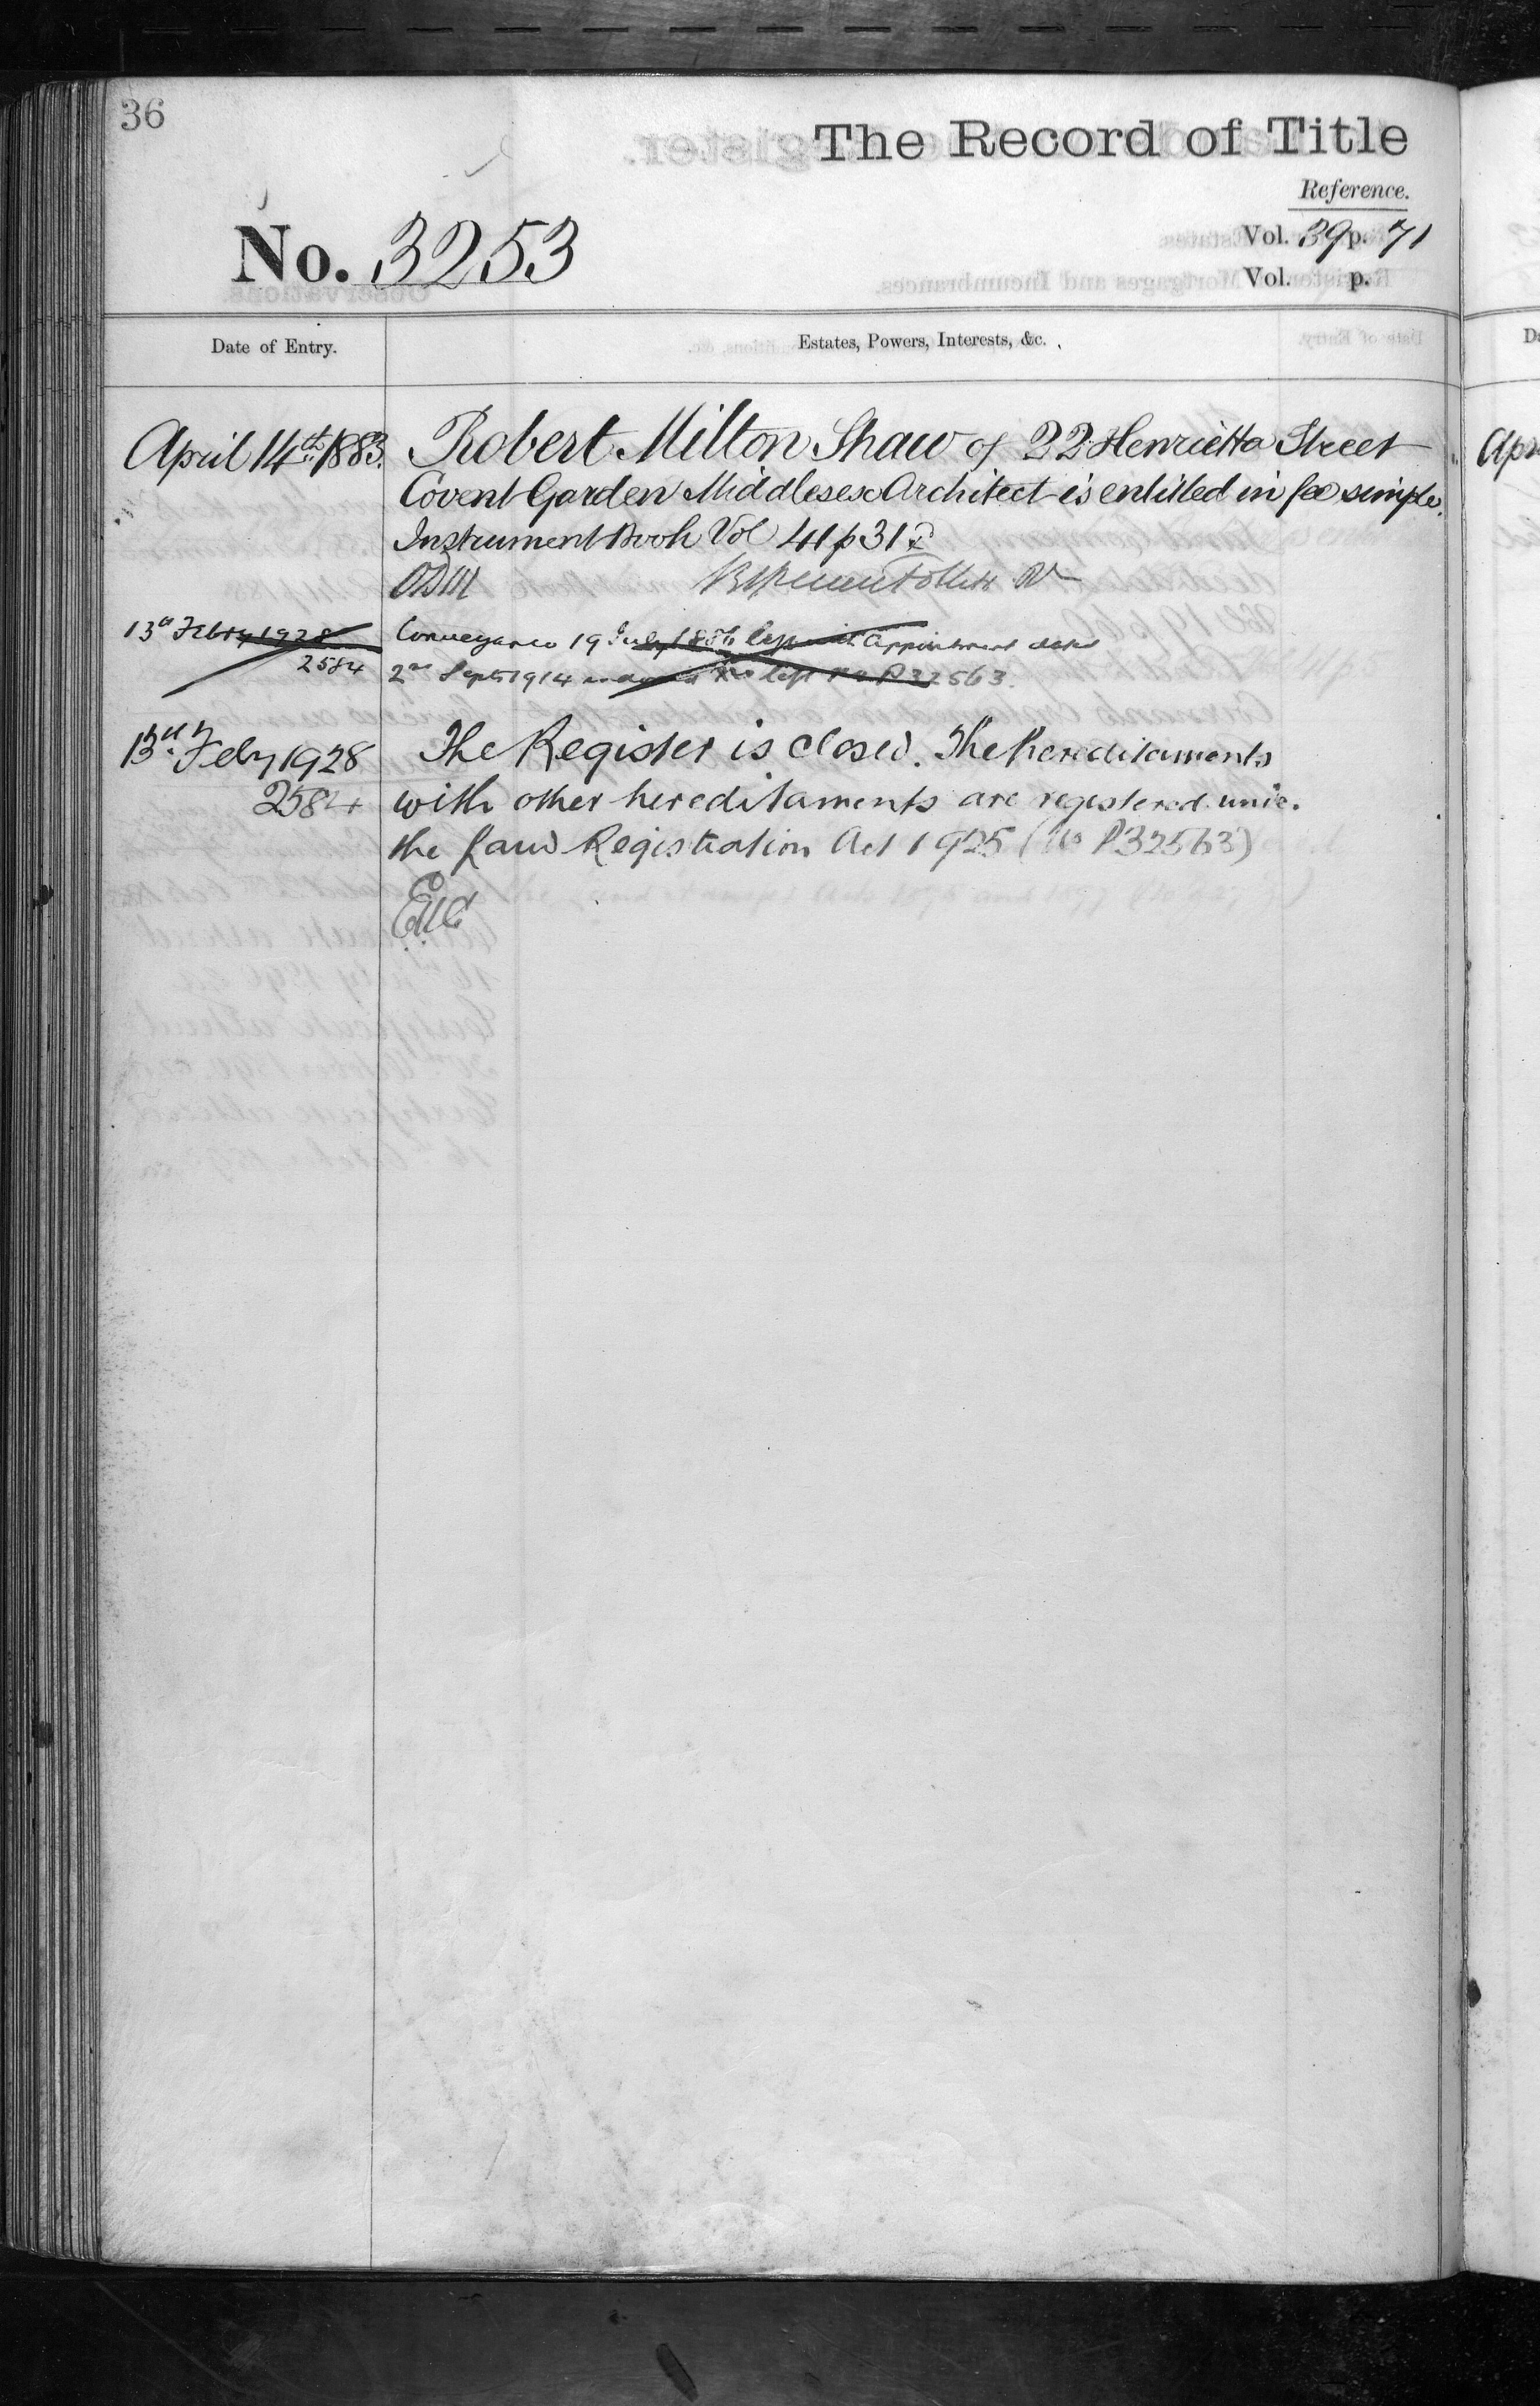 36
The Record of Title
Reference.
No. 3253
Vol. 39 p. 71
Vol. p.
Date of Entry.
Estates, Powers, Interests, &c.
April 14th 1883. Robert Milton Shaw of 22 Henrietta Street
Covent Garden Middlesex Architect is entitled in fee simple.
Instrument Book Vol 41 p 31
13th Febry 1928 Conveyance 19 July 1886 left with Appointment dated
2584 2nd Sept 1914 left P32563.
13th Feby 1928 The Register is closed. The hereditaments
2584 with other hereditaments are registered unde.
the Land Registration Act 1925 (No P32563)